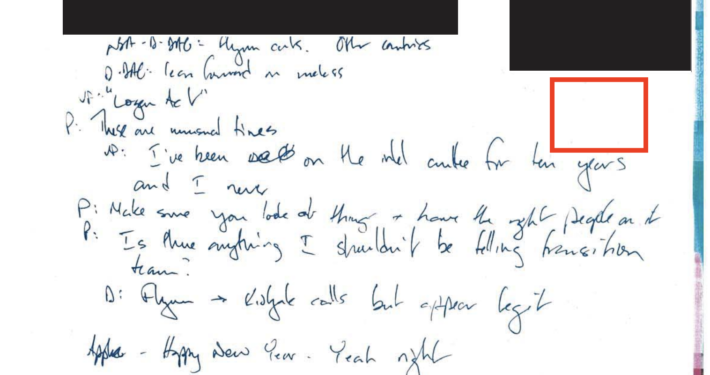 NSA-D-DAG: Flynn cuts. Other countries
D-DAG: lean forward on unclass
VP: "Logan Act"
P: These are unusual times
VP: I've been on the intel cmttee for ten years
and I never
P: Make sure you look at things + have the right people on it
P: Is there anything I shouldn't be telling transition
team?
D: Flynn → Kislyak calls but appear legit
Happy New Year. Yeah right